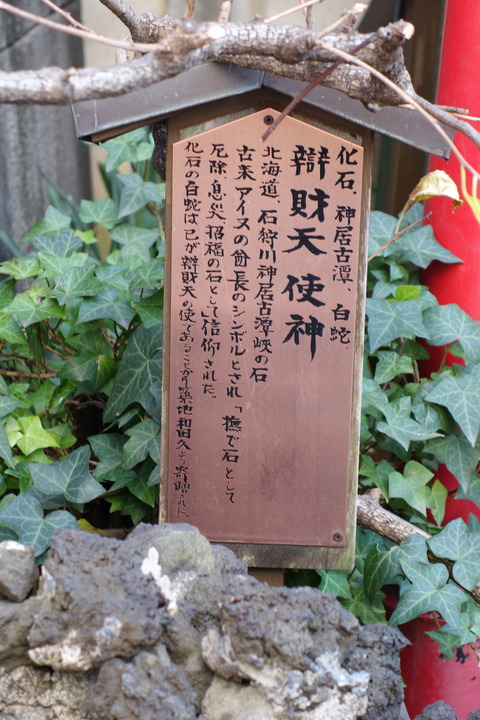 化石、神居古潭、白蛇、
辯財天使神
北海道、石狩川神居古潭峡の石
古来アイヌの酋長のシンボルとされ「撫で石として
厄除、息災、招福の石として」信仰された。
化石の白蛇は已が辯財天の使であることから築地和田久より寄贈された。